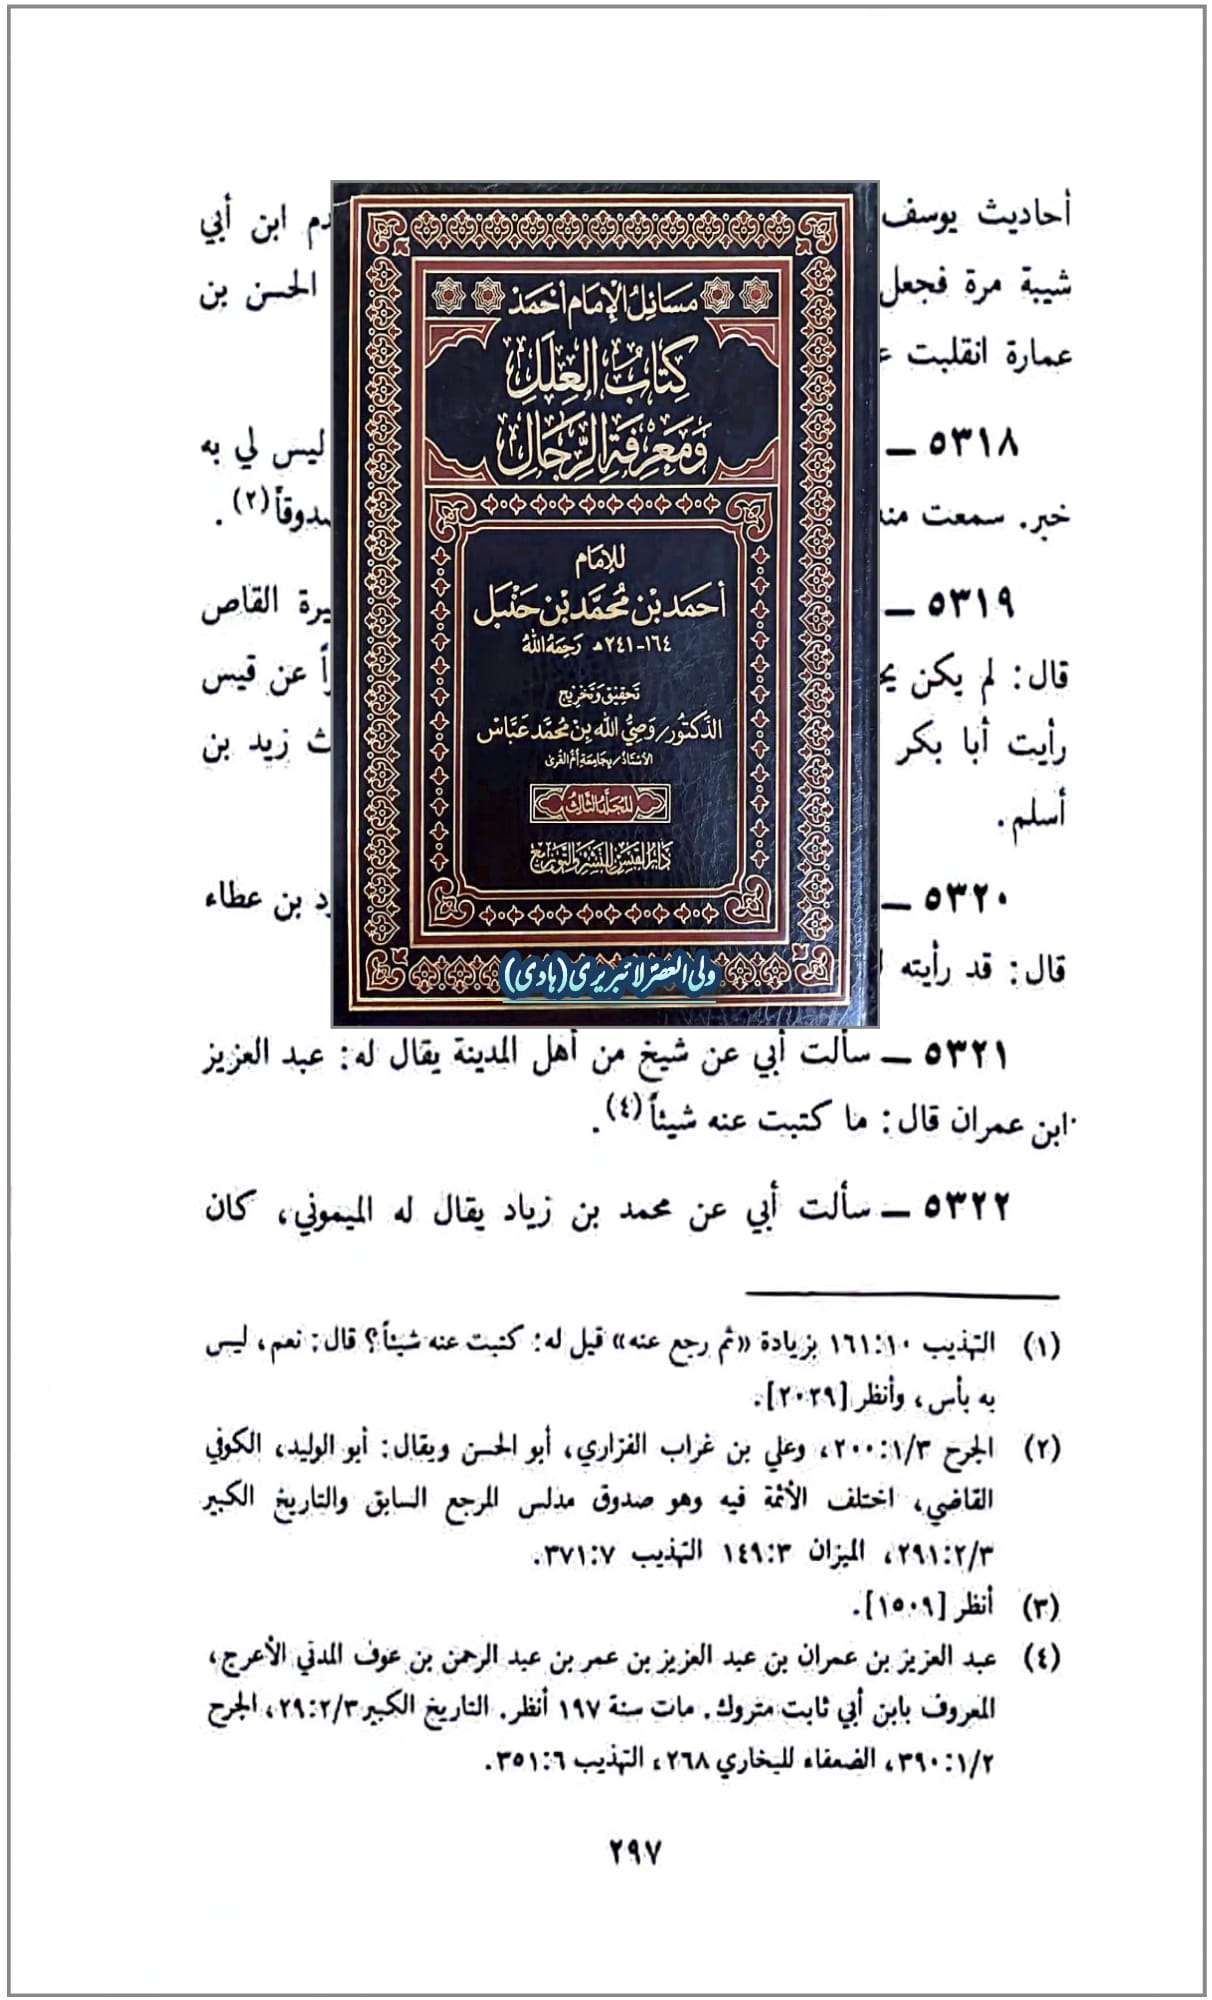 أحاديث يوسف
ابن أبي
شيبة مرة فجعل
الحسن بن
عمارة انقلبت
٥٣١٨ ــ
ليس لي به
خبر. سمعت
(٢).
٥٣١٩ ــ
القاص
قال: لم يكن
عن قيس
رأيت أبا بكر
زيد بن
أسلم.
٥٣٢٠ ــ
بن عطاء
قال: قد رأيته
مسائل الإمام أحمد
كتاب العلل
ومعرفة الرجال
للإمام
أحمد بن محمد بن حنبل
١٦٤-٢٤١هـ رحمه الله
تحقيق وتخريج
الدكتور/ وصي الله بن محمد عباس
الأستاذ بجامعة أم القرى
المجلد الثالث
دار القبس للنشر والتوزيع
ولی العصر لائبریری (ہادی)
٥٣٢١ ــ سألت أبي عن شيخ من أهل المدينة يقال له: عبد العزيز
ابن عمران قال: ما كتبت عنه شيئاً(٤).
٥٣٢٢ ــ سألت أبي عن محمد بن زياد يقال له الميموني، كان
(١) التهذيب ١٦١:١٠ بزيادة «ثم رجع عنه» قيل له: كتبت عنه شيئاً؟ قال: نعم، ليس
به بأس، وأنظر [٢٠٢٩].
(٢) الجرح ٢٠٠:١/٣، وعلي بن غراب الفزاري، أبو الحسن ويقال: أبو الوليد، الكوفي
القاضي، اختلف الأئمة فيه وهو صدوق مدلس المرجع السابق والتاريخ الكبير
٢٩١:٢/٣، الميزان ١٤٩:٣ التهذيب ٣٧١:٧.
(٣) أنظر [١٥٠٩].
(٤) عبد العزيز بن عمران بن عبد العزيز بن عمر بن عبد الرحمن بن عوف المدني الأعرج،
المعروف بابن أبي ثابت متروك. مات سنة ١٩٧ أنظر. التاريخ الكبير ٢٩:٢/٣، الجرح
٣٩٠:١/٢، الضعفاء للبخاري ٢٦٨، التهذيب ٣٥١:٦.
٢٩٧